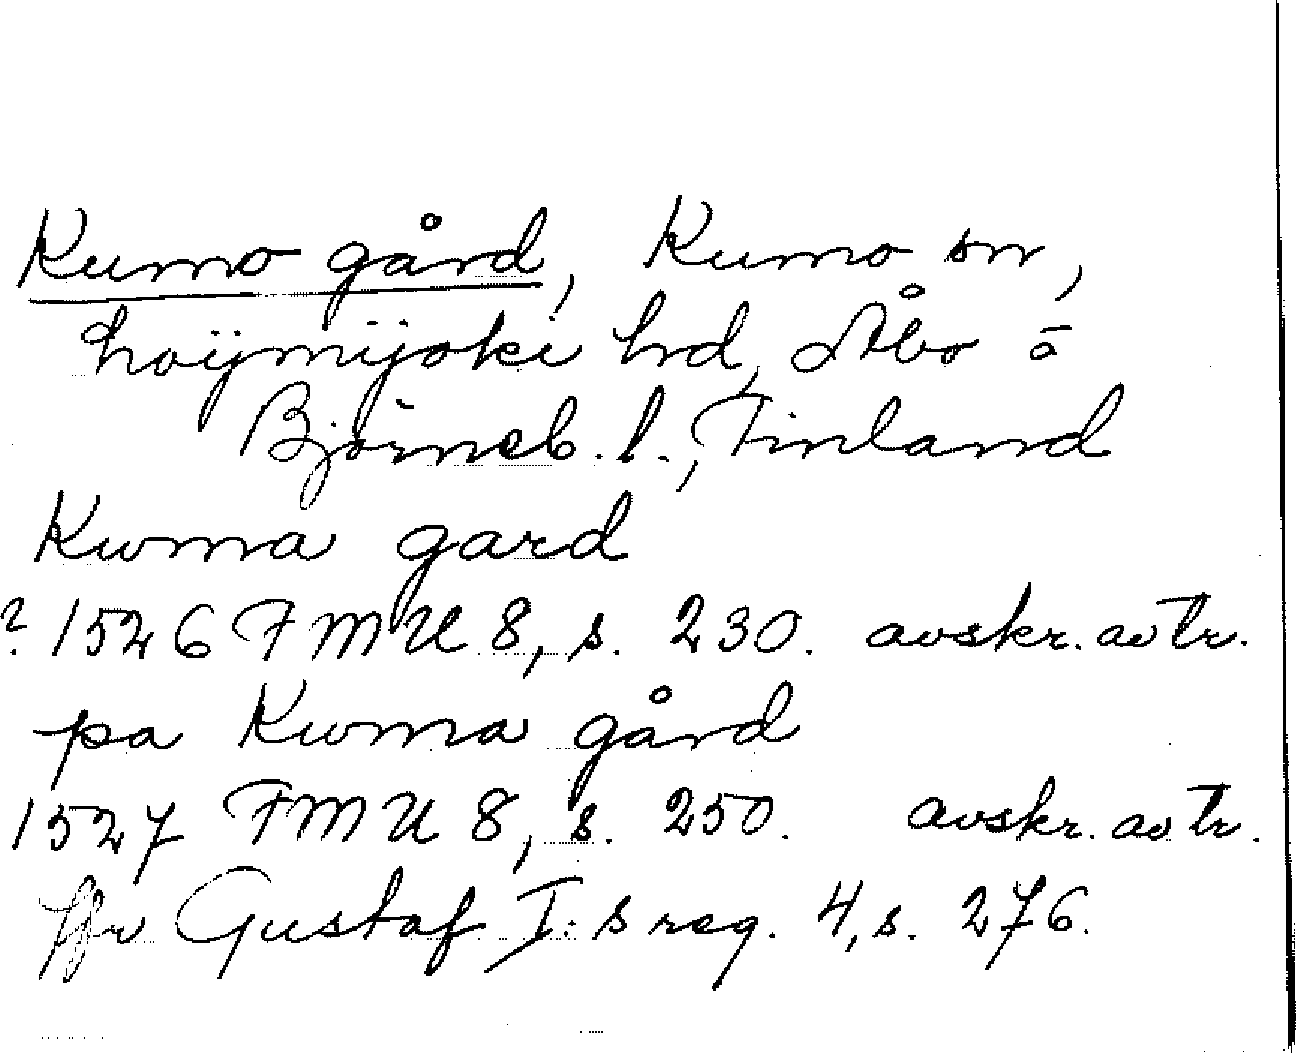 Kumo gård, Kumo sn,
hoijmijoki hrd, Åbo o
Björneb. l., Finland
Kwma gard
? 1526 FMU 8, s. 230. avskr. av tr.
pa Kwma gård
1527 FMU 8, s. 250. avskr. av tr.
Jfr Gustaf I:s reg. 4, s. 276.